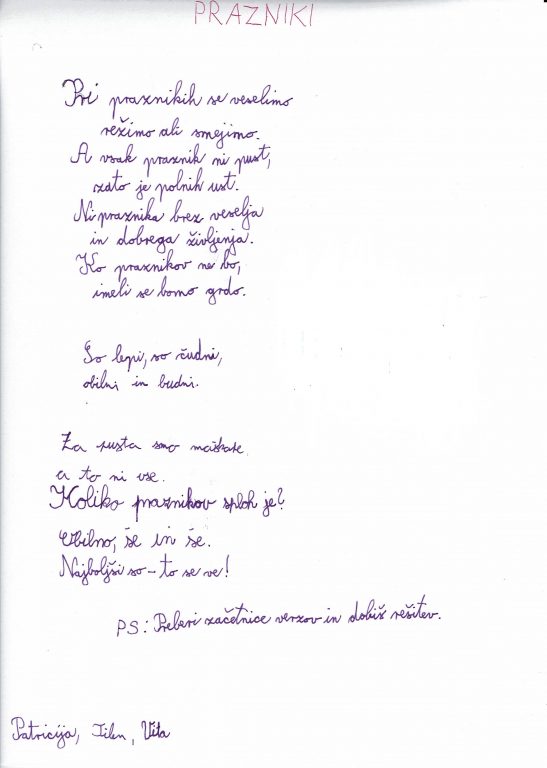 PRAZNIKI
Pri praznikih se veselimo
režimo ali smejimo.
A vsak praznik ni pust,
zato je polnih ust.
Ni praznika brez veselja
in dobrega življenja.
Ko praznikov ne bo,
imeli se bomo grdo.
So lepi, so čudni,
obilni in budni.
Za pusta smo maškare
a to ni vse.
Koliko praznikov sploh je?
Obilno, še in še.
Najboljši so - to se ve!
PS: Preberi začetnice verzov in dobiš rešitev.
Patricija, Tilen, Vita